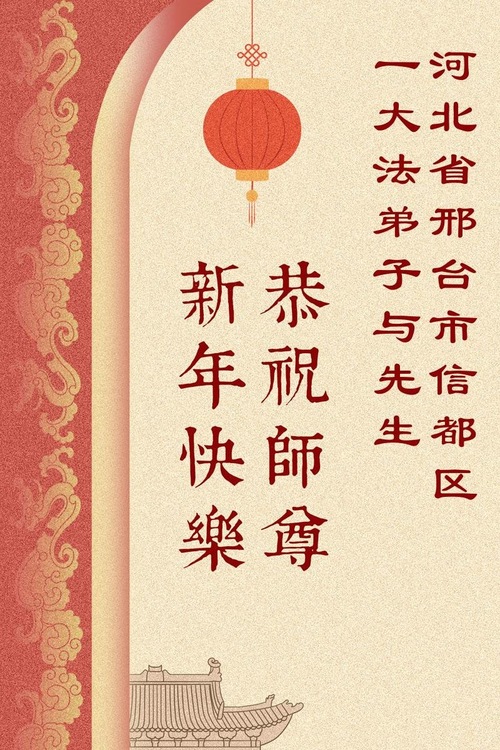 河北省邢台市信都区
一大法弟子与先生
恭祝師尊
新年快樂